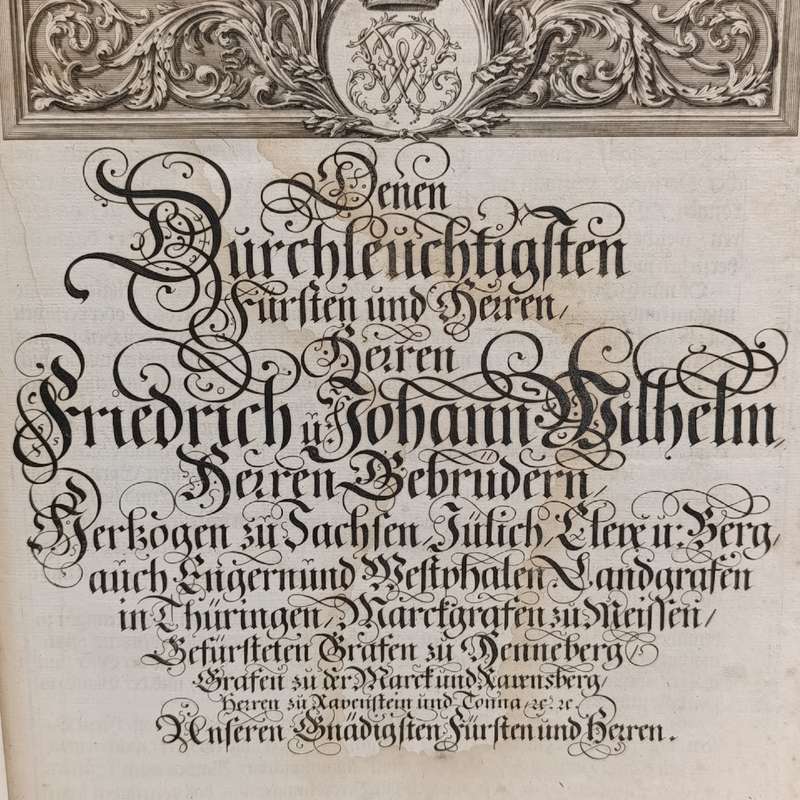 Denen
Durchleuchtigsten
Fürsten und Herren/
Herren
Friedrich u. Johann Wilhelm,
Herren Gebrüdern/
Hertzogen zu Sachsen/Jülich/Cleve u: Berg/
auch Engern und Westphalen/Landgrafen
in Thüringen/Marckgrafen zu Meissen/
Gefürsteten Grafen zu Henneberg/
Grafen zu der Marck und Ravensberg/
Herren zu Ravenstein und Tonna/ꝛc. ꝛc.
Unseren Gnädigsten Fürsten und Herren.